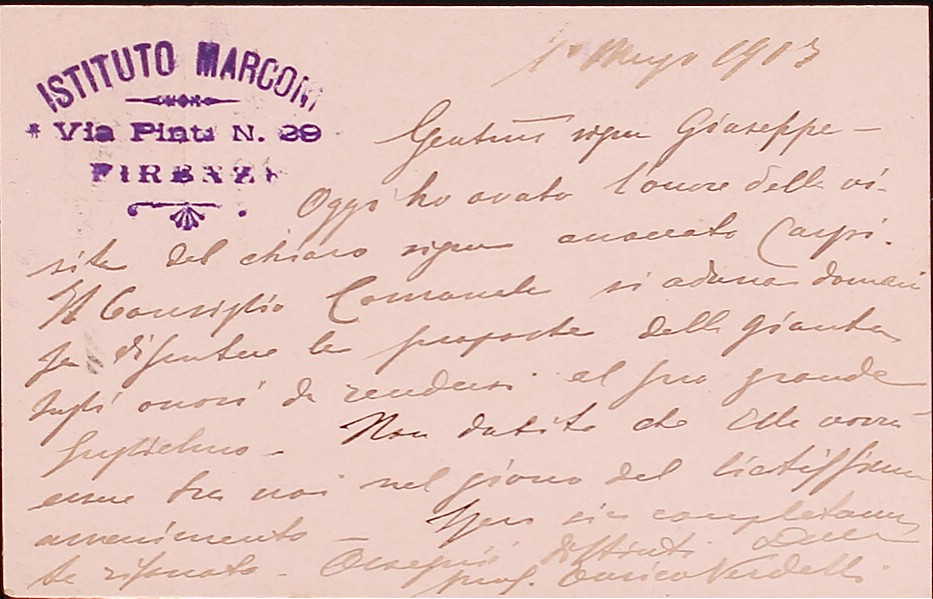 ISTITUTO MARCONI
Via Pinti N. 29
FIRENZE
1° Maggio 1903
signor Giuseppe —
Oggi ho avuto l'onore della vi-
sita del chiaro signor avvocato Carpi.
Il Consiglio Comunale si aduna domani
per discutere le proposte della Giunta
sugli onori da rendersi al suo grande
Guglielmo — Non dubito che Ella vorrà
essere tra noi nel giorno del lietissimo
avvenimento — Spero sia completamen
te rifinito — Ossequi distinti Dalla
prof. Enrico Verdelli